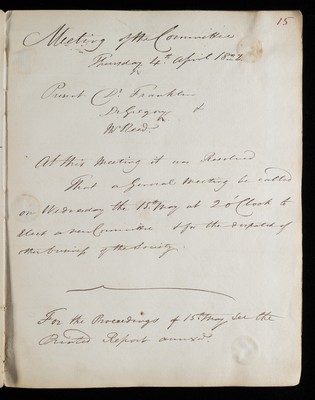 15
Meeting of the Committee
Thursday 4th April 1822
Present Dr Franklin
Dr Gregory &
Mr Reed.
At this Meeting it was Resolved
That a General Meeting be called
on Wednesday the 15th May at 2 o'Clock to
elect a new Committee & for the despatch of
other business of the Society.
For the Proceedings of 15th May see the
Printed Report annexd.